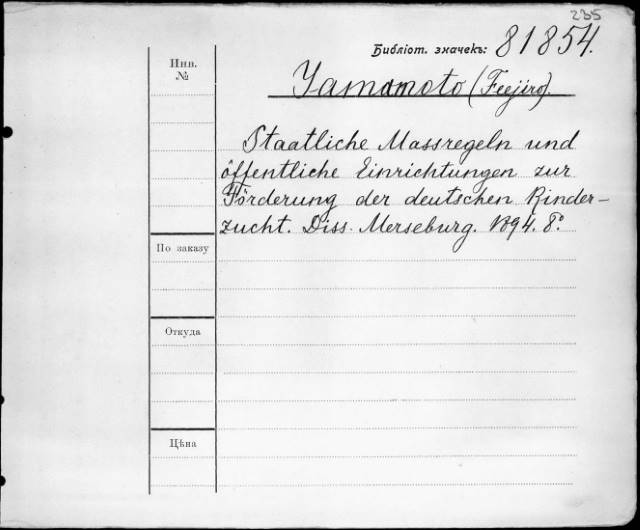 235
Библіот. значекъ: 81854.
Инв.
№
Yamamoto (Feejiro).
Staatliche Massregeln und
öffentliche Einrichtungen zur
Förderung der deutschen Rinder-
zucht. Diss. Merseburg. 1894. 8°
По заказу
Откуда
Цѣна